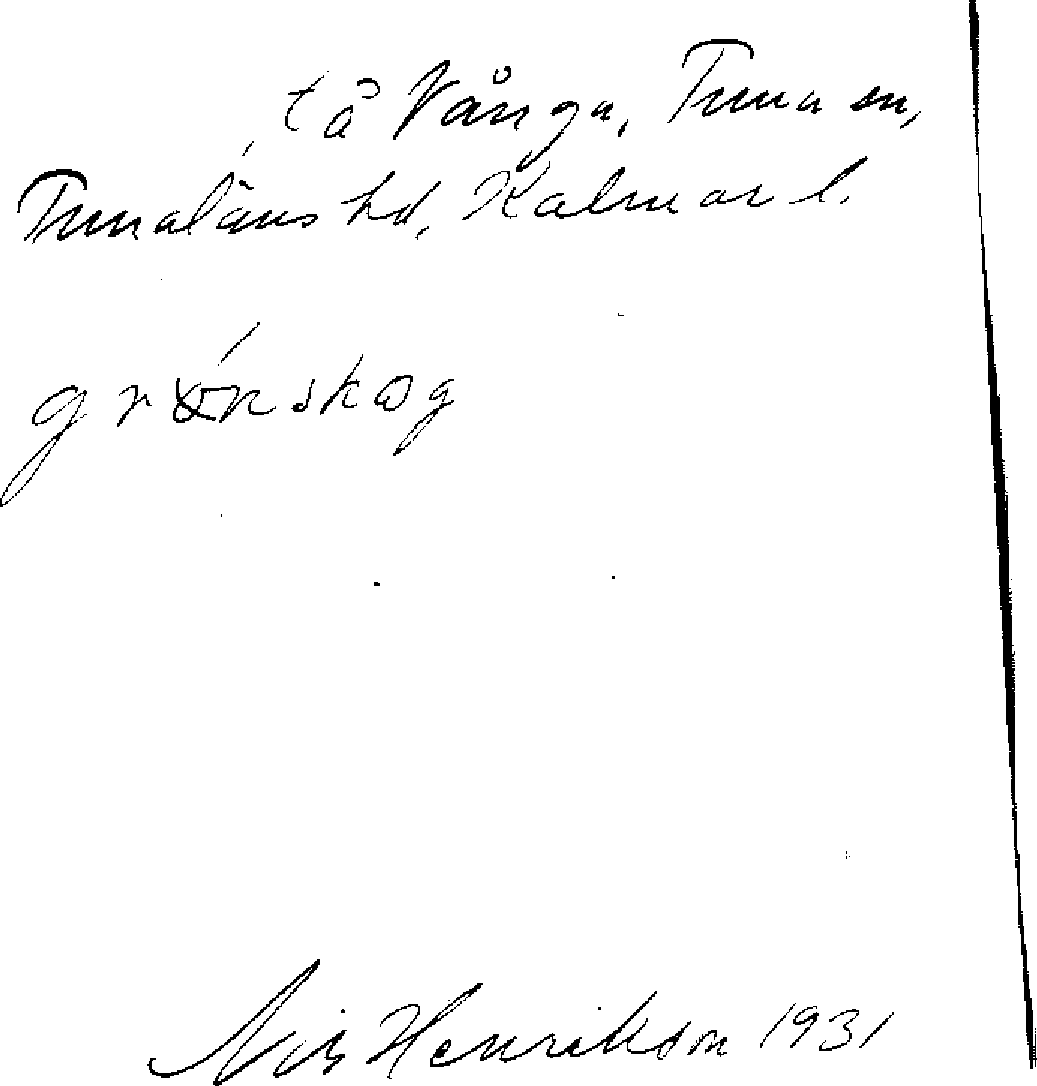 tå Vånga, Tuna sn,
Tunaläns hd, Kalmar l.
grönskog
Nils Henrikson 1931